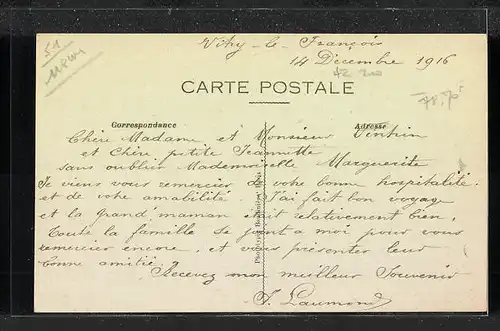 Vitry-le-François
14 Décembre 1916
CARTE POSTALE
Correspondance
Adresse
Chère Madame et Monsieur
et Chère petite Jeannette
sans oublier Mademoiselle Marguerite
Je viens vous remercier de votre bonne hospitalité
et de votre amabilité J'ai fait bon voyage
et la grand maman était relativement bien,
Toute la famille se joint a moi pour vous
remercier encore, et vous présenter leur
bonne amitié.
Recevez mon meilleur Souvenir